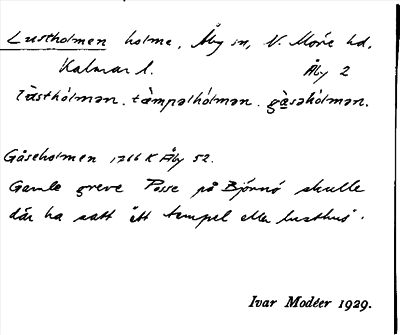 Lustholmen holme, Åby sn, N. Möre hd,
Kalmar l. Åby 2
lùsthólmən. tàmpəlhólmən. gàsəhólmən.
Gåseholmen 1266 K Åby 52.
Gamle greve Posse på Björnö skulle
där ha satt ett tempel eller lusthus.
Ivar Modéer 1929.